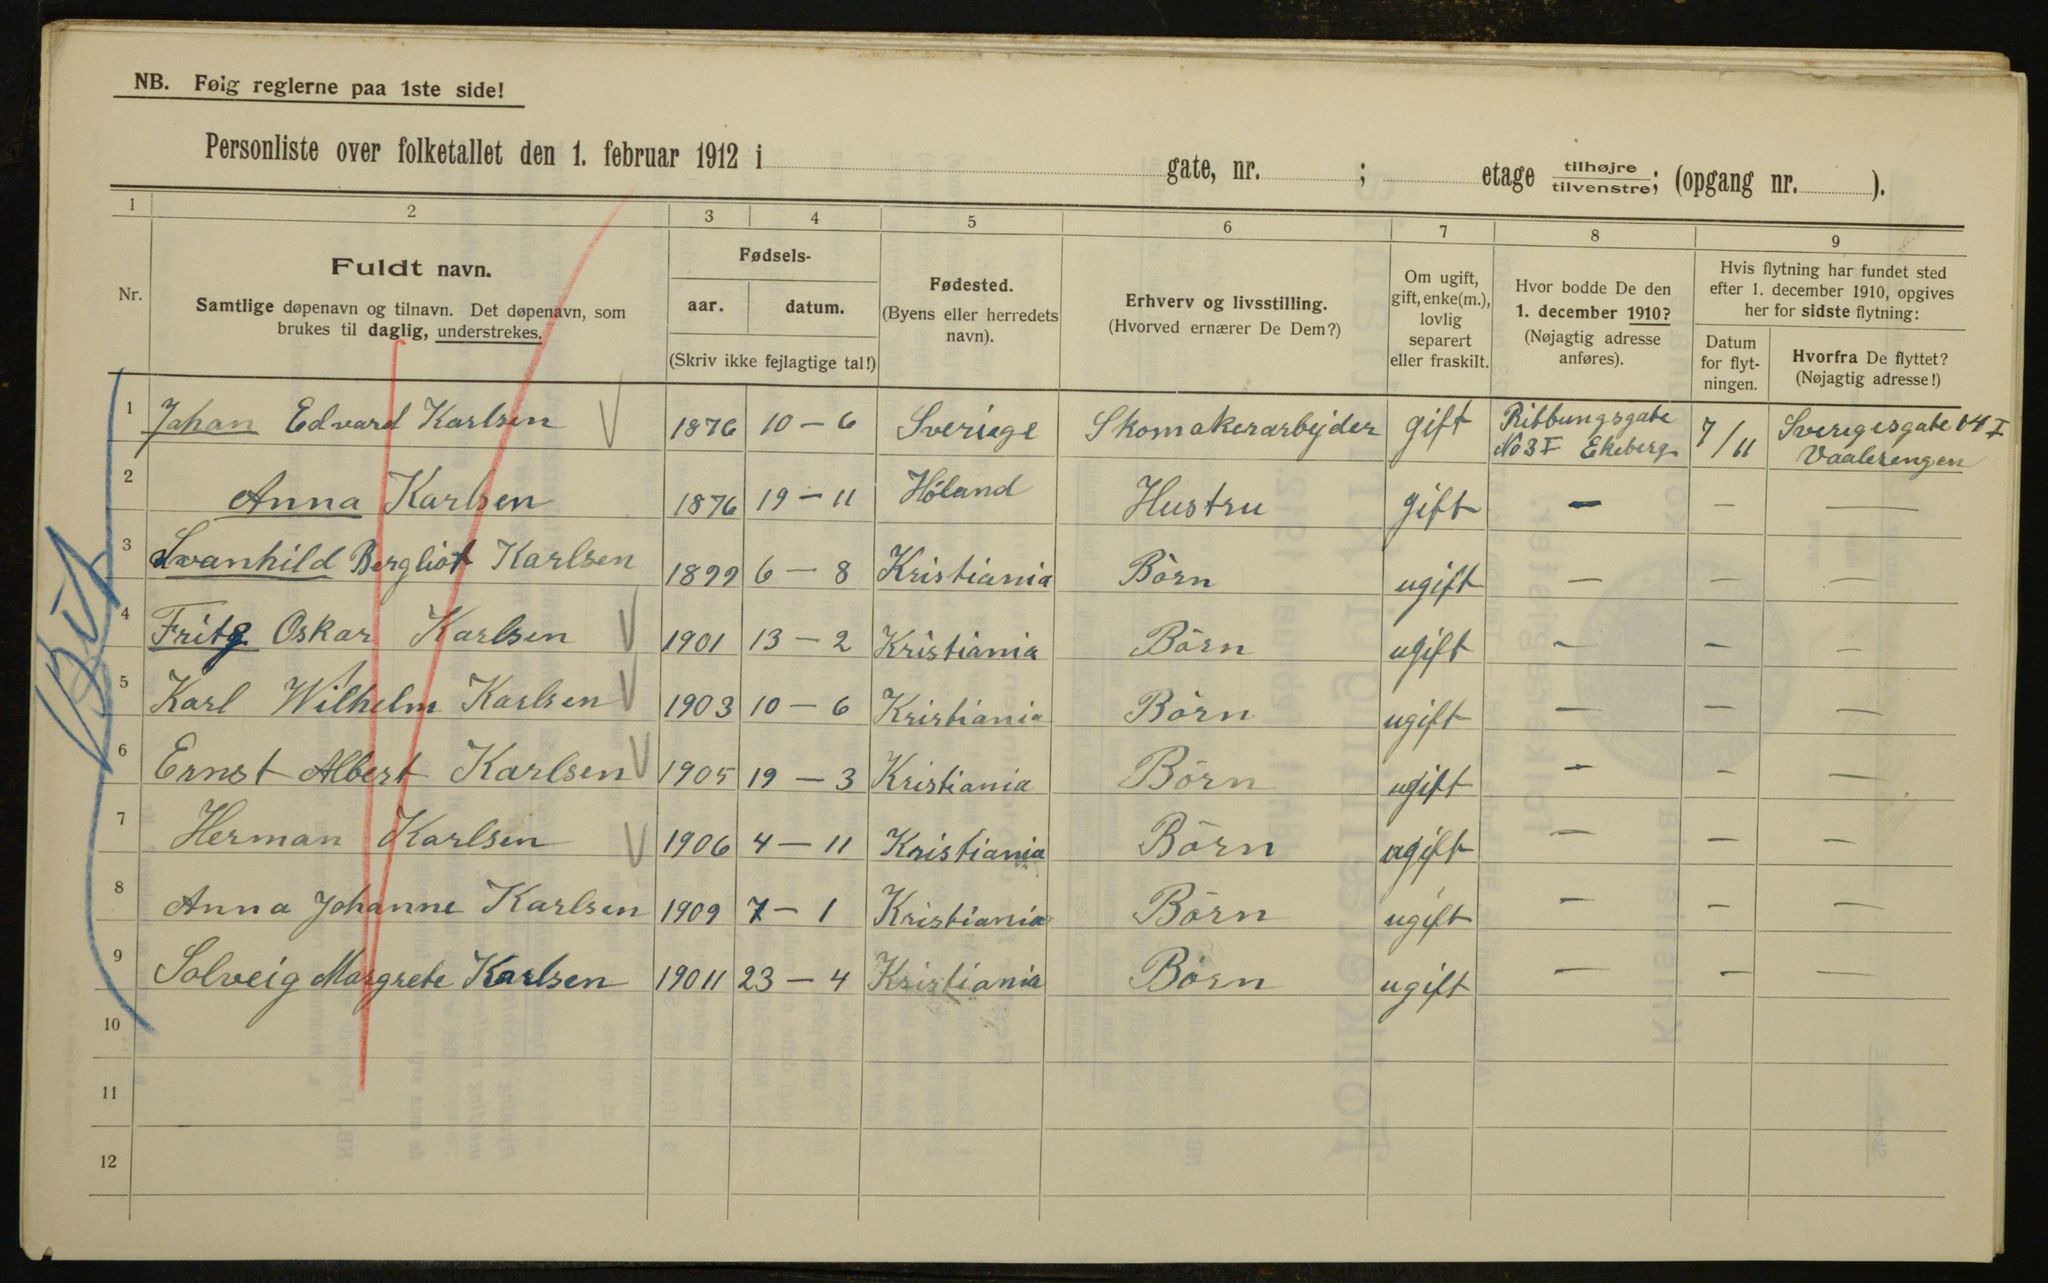 NB. Følg reglerne paa 1ste side!
Personliste over folketallet den 1. februar 1912 i gate, nr. ; etage tilhøjre tilvenstre; (opgang nr. ).
1 2 3 4 5 6 7 8 9
Nr.
Fuldt navn.
Samtlige døpenavn og tilnavn. Det døpenavn, som
brukes til daglig, understrekes.
Fødsels-
aar. datum.
(Skriv ikke fejlagtige tal!)
Fødested.
(Byens eller herredets
navn).
Erhverv og livsstilling.
(Hvorved ernærer De Dem?)
Om ugift,
gift, enke(m.),
lovlig
separert
eller fraskilt.
Hvor bodde De den
1. december 1910?
(Nøjagtig adresse
anføres).
Hvis flytning har fundet sted
efter 1. december 1910, opgives
her for sidste flytning:
Datum
for flyt-
ningen.
Hvorfra De flyttet?
(Nøjagtig adresse!)
1 Johan Edvard Karlsen 1876 10 – 6 Sverige Skomakerarbejder gift Ribbungsgate No 3 I Ekeberg 7/11 Sverigesgate 14 I Vaalerengen
2 Anna Karlsen 1876 19 – 11 Høland Hustru gift – – –
3 Svanhild Bergliot Karlsen 1899 6 – 8 Kristiania Börn ugift – – –
4 Fritz Oskar Karlsen 1901 13 – 2 Kristiania Börn ugift – – –
5 Karl Wilhelm Karlsen 1903 10 – 6 Kristiania Börn ugift – – –
6 Ernst Albert Karlsen 1905 19 – 3 Kristiania Börn ugift – – –
7 Herman Karlsen 1906 4 – 11 Kristiania Börn ugift – – –
8 Anna Johanne Karlsen 1909 7 – 1 Kristiania Börn ugift – – –
9 Solveig Margrete Karlsen 19011 23 – 4 Kristiania Börn ugift – – –
10
11
12